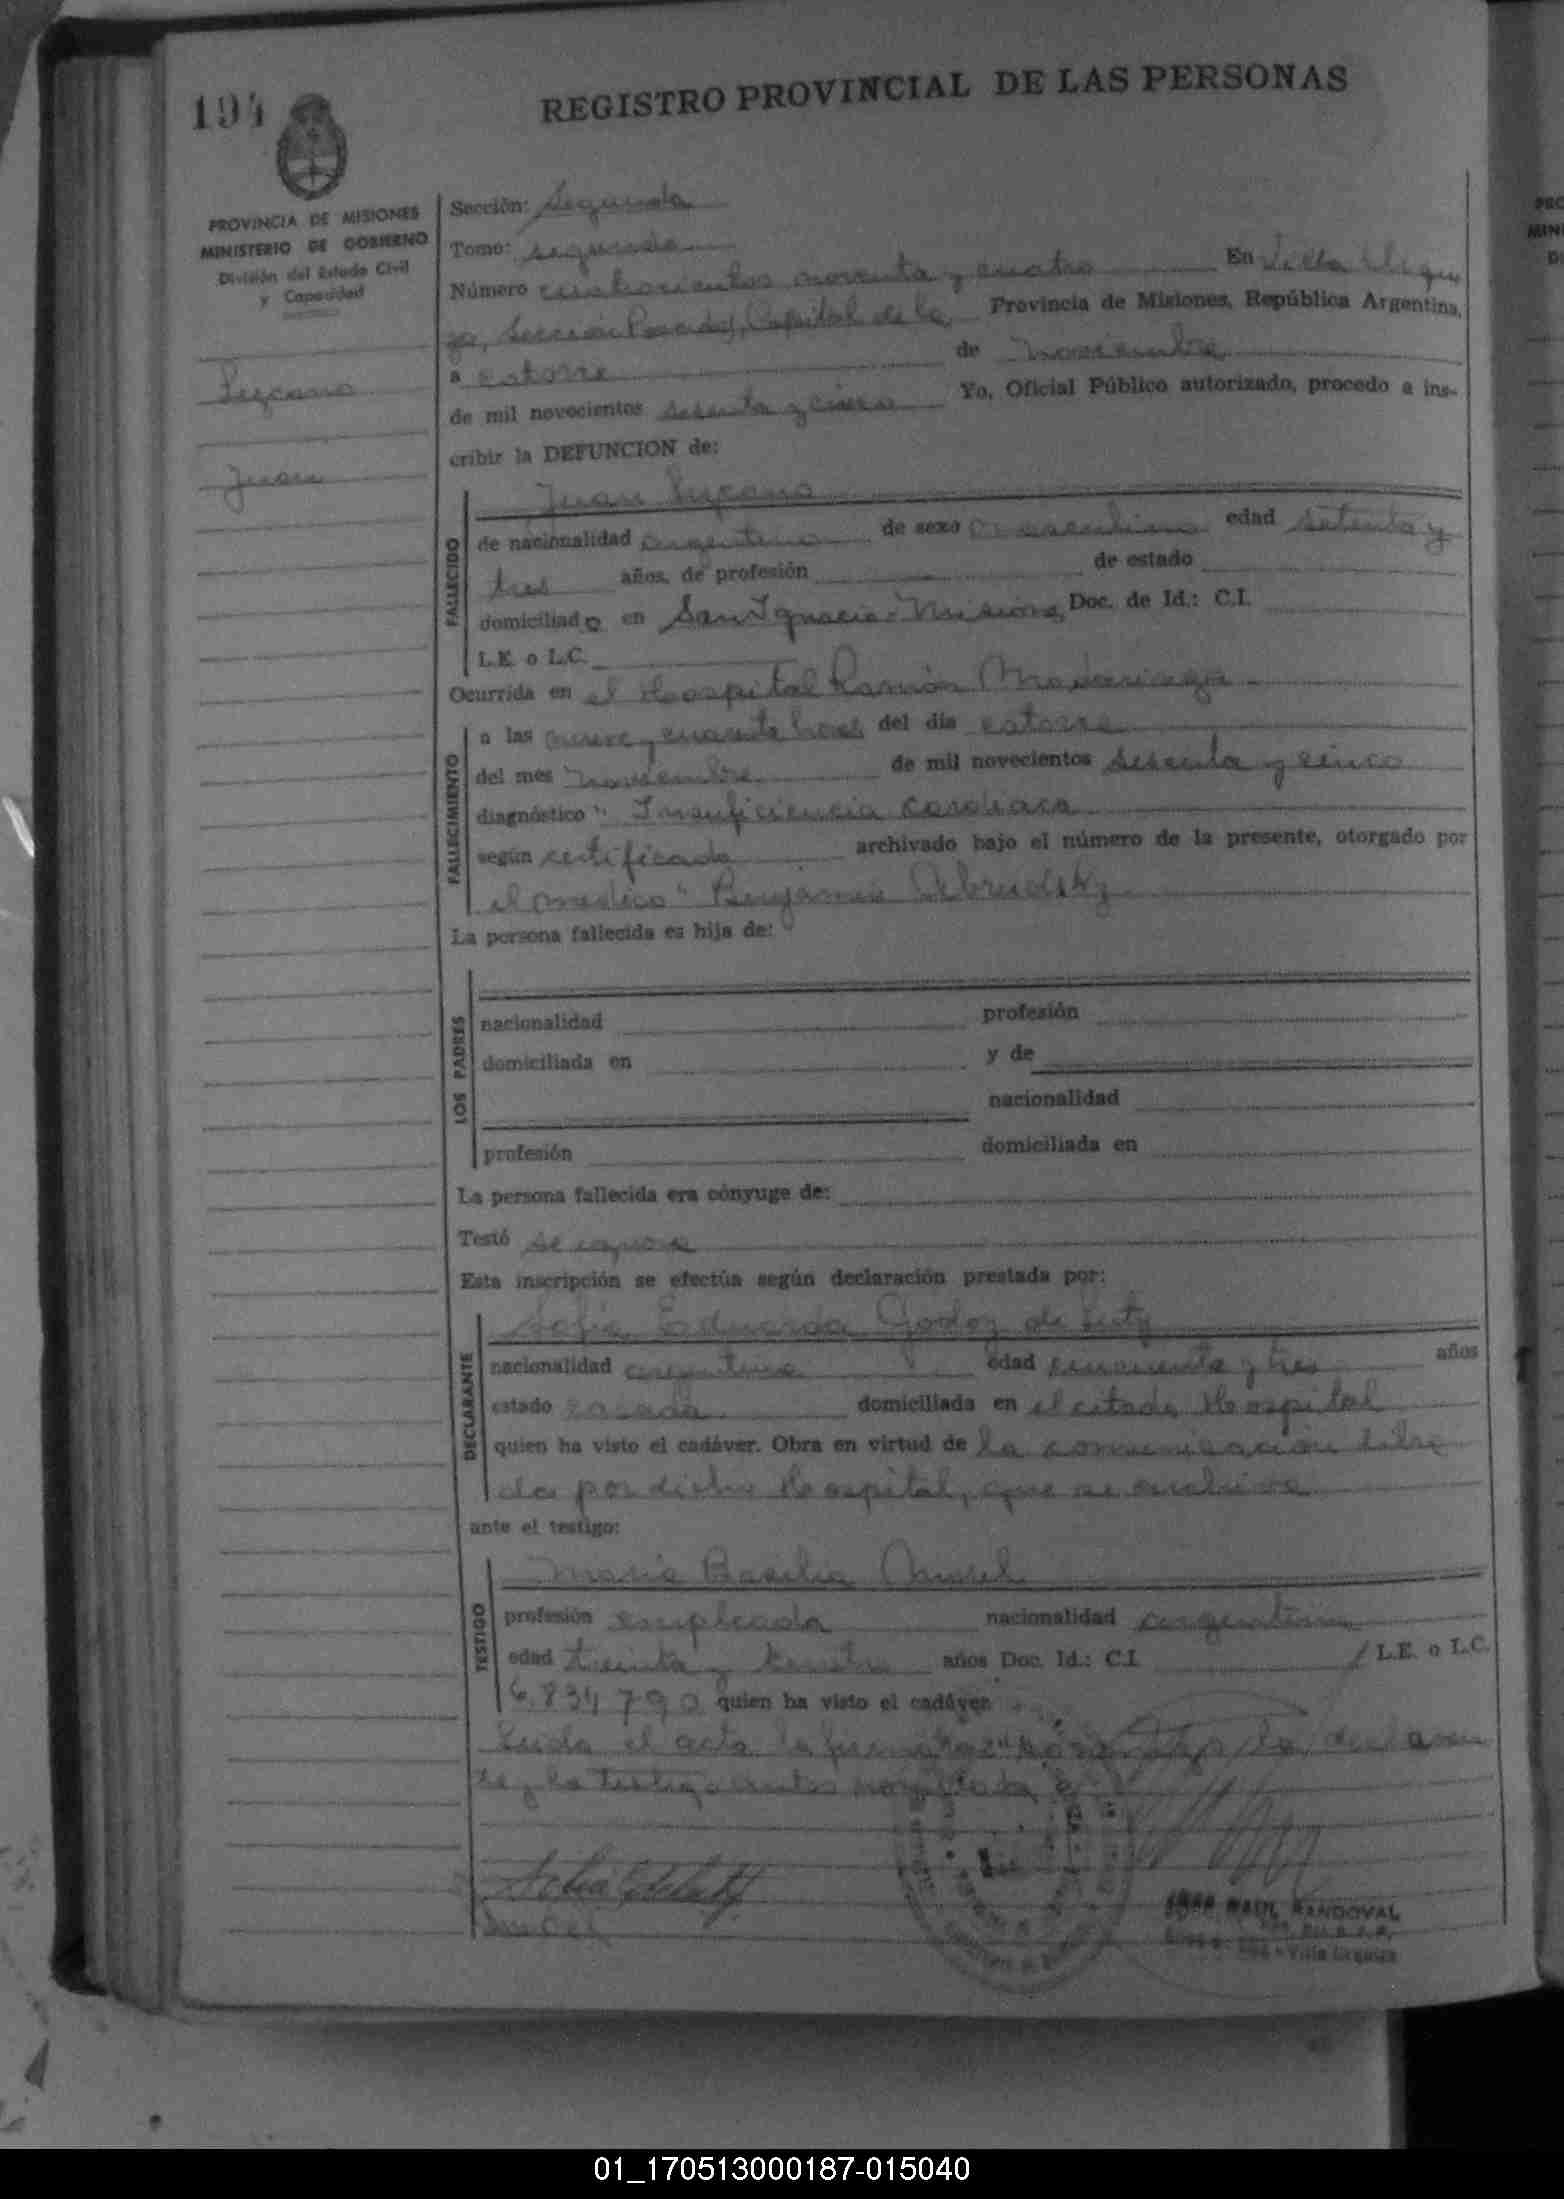 194
REGISTRO PROVINCIAL DE LAS PERSONAS
PROVINCIA DE MISIONES
MINISTERIO DE GOBIERNO
División del Estado Civil
y Capacidad
Lezcano
Juan
Sección: Segunda
Tomo: segundo
Número cuatrocientos noventa y cuatro En Villa Urqui
za, Sección Posadas, Capital de la Provincia de Misiones, República Argentina,
a catorce de noviembre
de mil novecientos sesenta y cinco Yo, Oficial Público autorizado, procedo a ins-
cribir la DEFUNCION de:
Juan Lezcano
FALLECIDO
de nacionalidad argentino de sexo masculino edad setenta y
tres años, de profesión de estado
domiciliado en San Ignacio - Misiones Doc. de Id.: C.I.
L.E. o L.C.
Ocurrida en el Hospital Ramón Madariaga
FALLECIMIENTO
a las nueve y cuarenta horas del día catorce
del mes noviembre de mil novecientos sesenta y cinco
diagnóstico " Insuficiencia cardiaca
según certificado archivado bajo el número de la presente, otorgado por
el medico " Benjamin Abrudsky
La persona fallecida es hija de:
LOS PADRES
nacionalidad profesión
domiciliada en y de
nacionalidad
profesión domiciliada en
La persona fallecida era cónyuge de:
Testó se ignora
Esta inscripción se efectúa según declaración prestada por:
Sofia Eduarda Godoy de
DECLARANTE
nacionalidad argentina edad cincuenta y tres años
estado casada domiciliada en el citado Hospital
quien ha visto el cadáver. Obra en virtud de la comunicación libra
da por dicho Hospital, que se archiva
ante el testigo:
Maria Basilia
TESTIGO
profesión empleada nacionalidad argentina
edad treinta y años Doc. Id.: C.I. / L.E. o L.C.
6.834.790 quien ha visto el cadáver
Leida el acta la firman la declaran
te y la testigo
RAUL SANDOVAL
Villa Urquiza
01_170513000187-015040